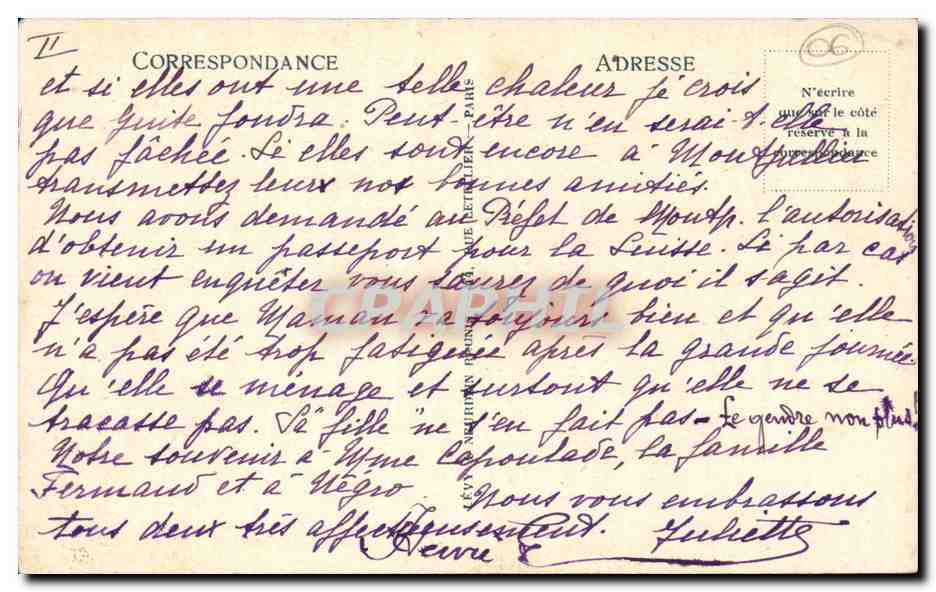 II
06
CORRESPONDANCE
ADRESSE
N'écrire
que sur le côté
réservé à la
correspondance
et si elles ont une telle chaleur je crois
que Guite fondra. Peut-être n'en serai t. elle
pas fâchée. Si elles sont encore à Montpellier
transmettez leurs nos bonnes amitiés.
Nous avons demandé au Préfet de Montp. l'autorisation
d'obtenir un passeport pour la Suisse. Si par cas
on vient enquêter vous saurez de quoi il s'agit.
J'espère que Maman va toujours bien et qu'elle
n'a pas été trop fatiguée après la grande journée.
Qu'elle se ménage et surtout qu'elle ne se
tracasse pas. Sa "fille" ne s'en fait pas - Le gendre non plus!
Notre souvenir à Mme Capoulade, la famille
Fermaud et à Négro. Nous vous embrassons
tous deux très affectueusement. Juliette
LÉVY ET NEURDEIN RÉUNIS, 44, RUE LETELLIER — PARIS
CPARHIL